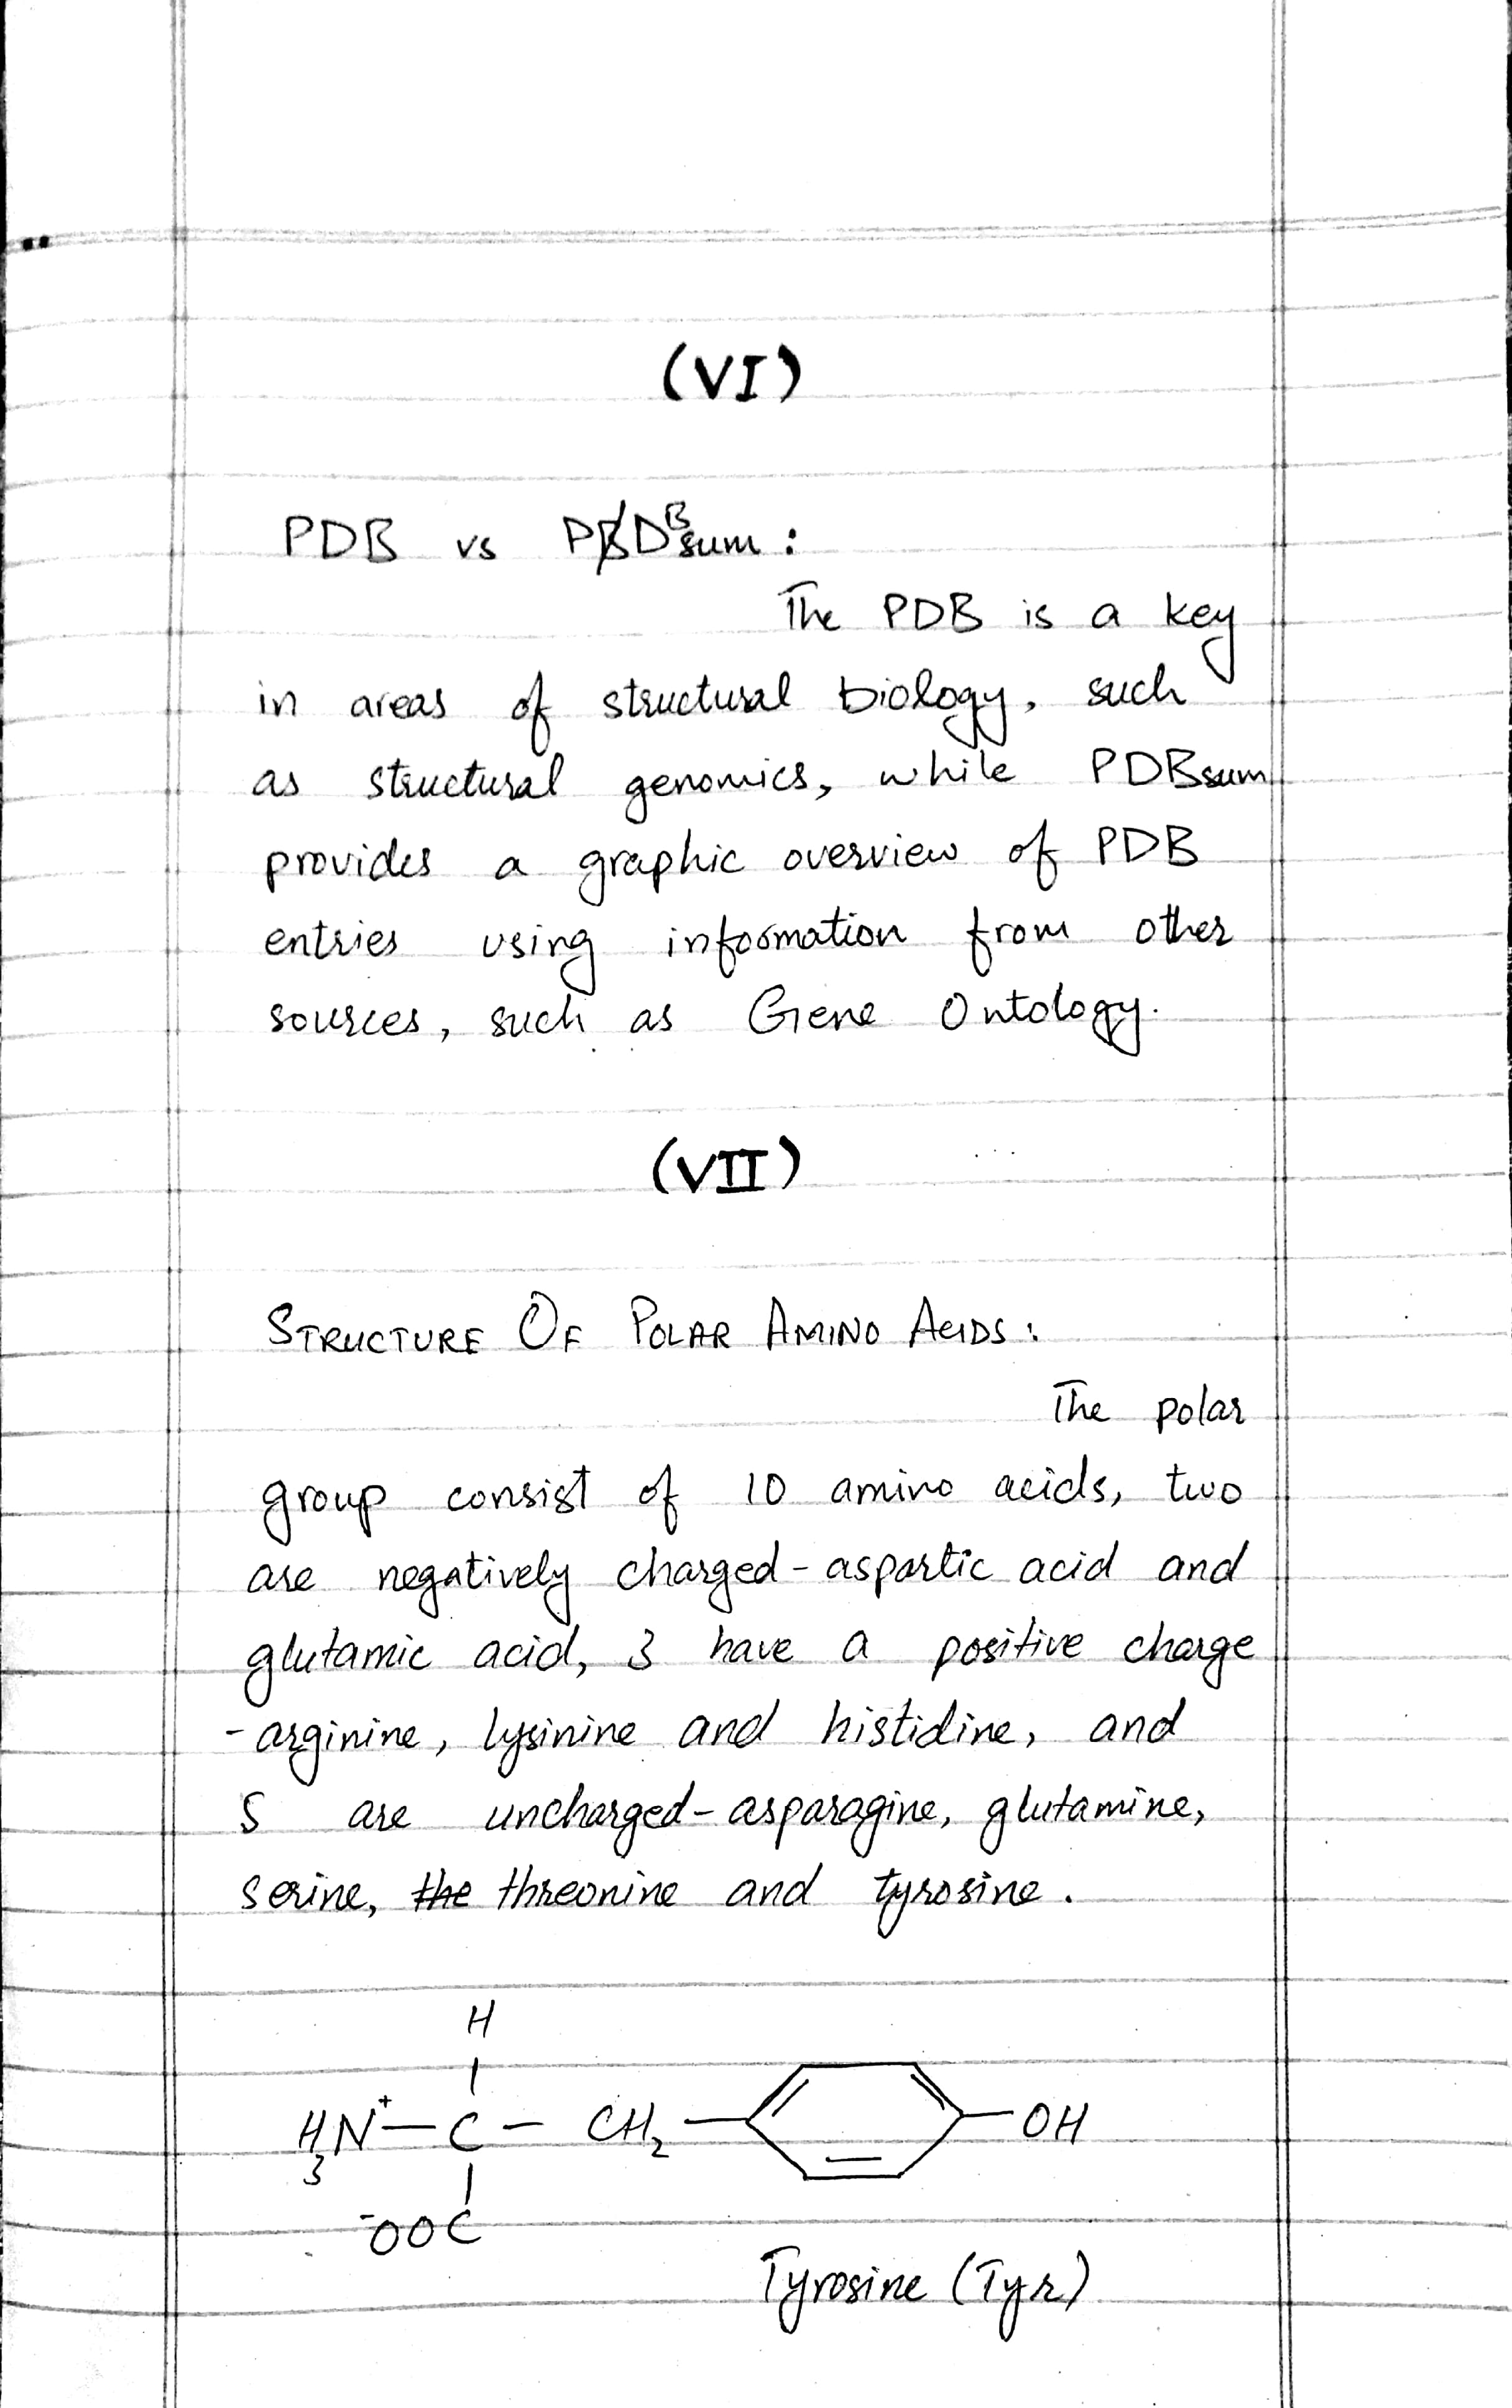 (VI)
PDB vs PDBsum :
The PDB is a key
in areas of structural biology, such
as structural genomics, while PDBsum
provides a graphic overview of PDB
entries using information from other
sources, such as Gene Ontology.
(VII)
STRUCTURE OF POLAR AMINO ACIDS :
The polar
group consist of 10 amino acids, two
are negatively charged - aspartic acid and
glutamic acid, 3 have a positive charge
- arginine, lysinine and histidine, and
5 are uncharged - asparagine, glutamine,
serine, the threonine and tyrosine.
H
H₃N⁺ — C — CH₂ — OH
⁻OOC
Tyrosine (Tyr)